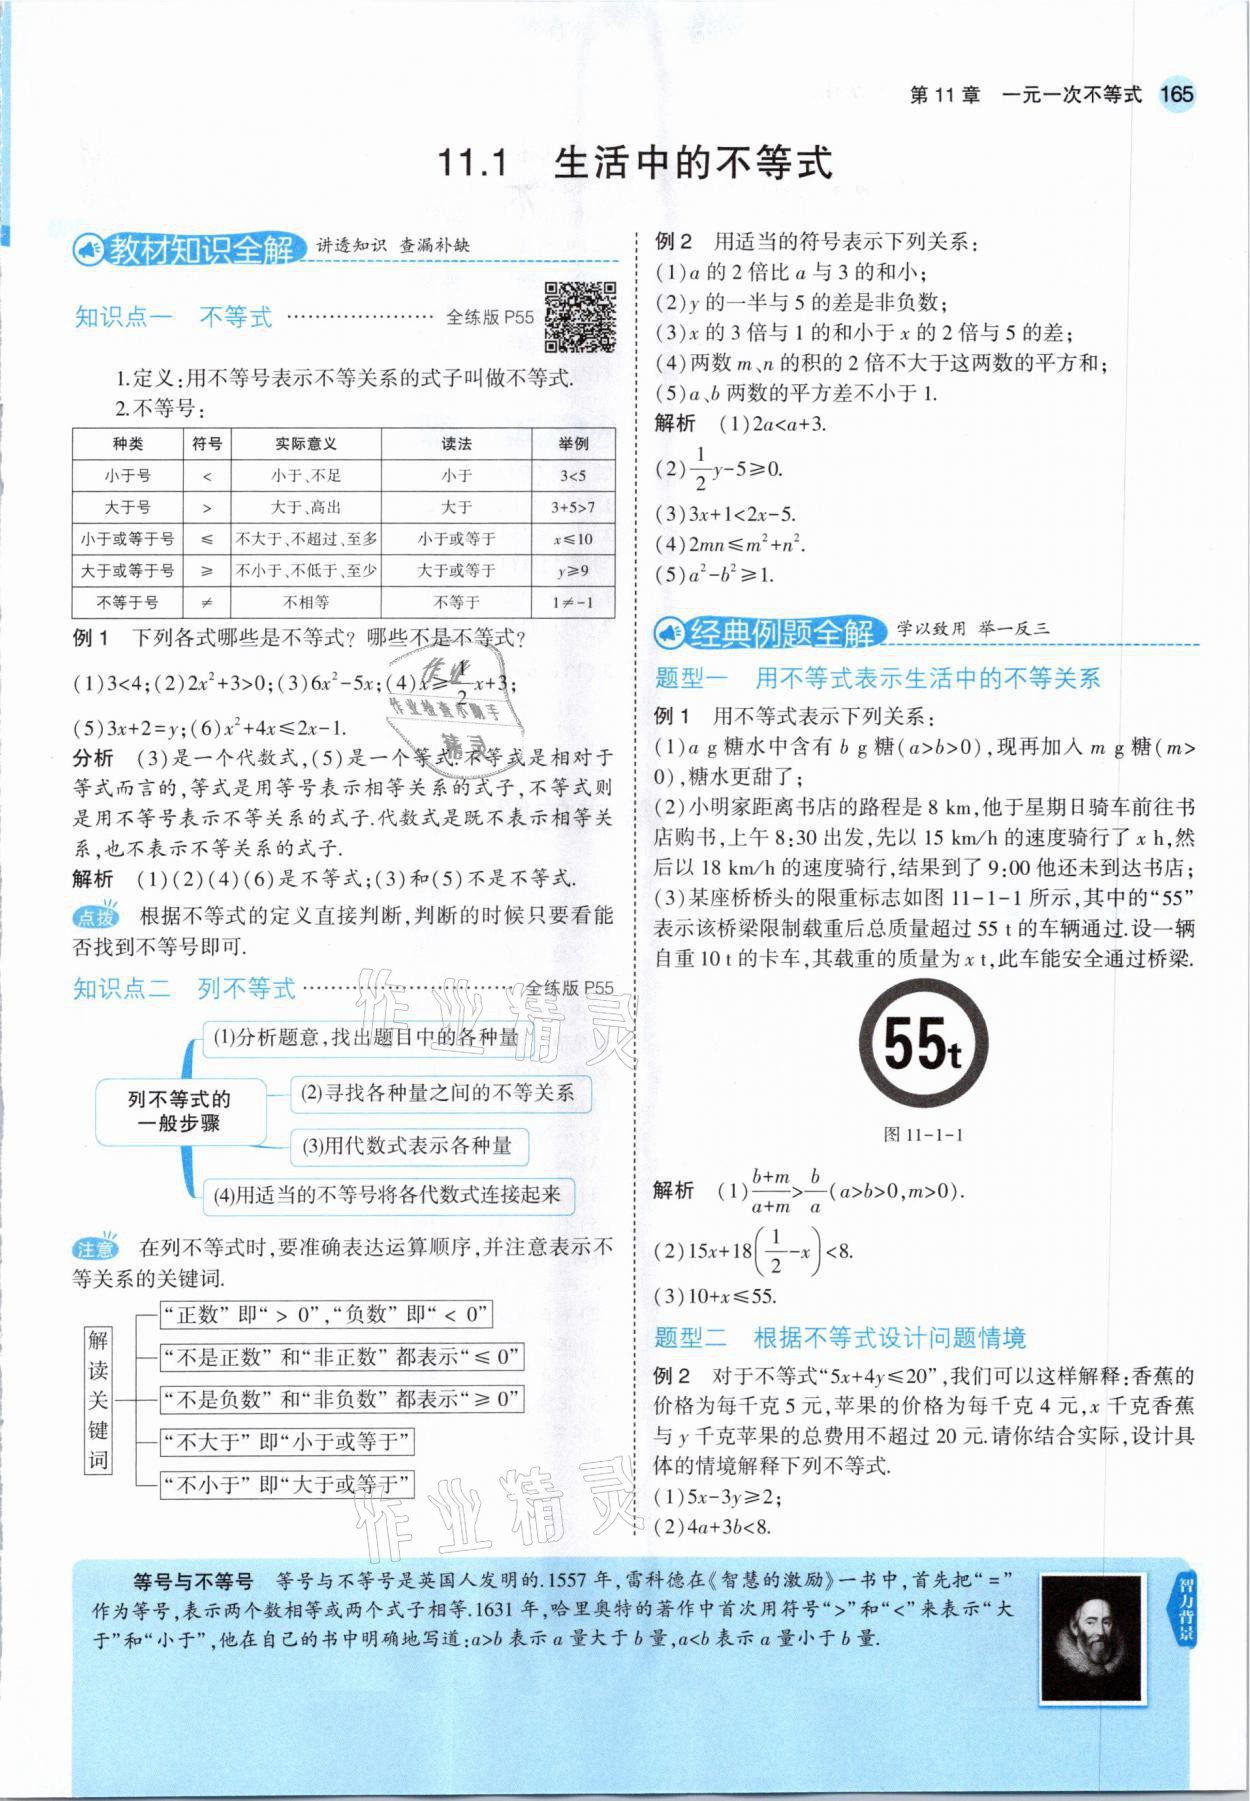 第 11 章 一元一次不等式 165
11.1 生活中的不等式
教材知识全解 讲透知识 查漏补缺
知识点一 不等式 ………………… 全练版 P55
1.定义:用不等号表示不等关系的式子叫做不等式.
2.不等号:
种类 符号 实际意义 读法 举例
小于号 < 小于、不足 小于 3<5
大于号 > 大于、高出 大于 3+5>7
小于或等于号 ≤ 不大于、不超过、至多 小于或等于 x≤10
大于或等于号 ≥ 不小于、不低于、至少 大于或等于 y≥9
不等于号 ≠ 不相等 不等于 1≠-1
例 1 下列各式哪些是不等式? 哪些不是不等式?
(1)3<4;(2)2x²+3>0;(3)6x²-5x;(4)x≥1/2x+3;
(5)3x+2=y;(6)x²+4x≤2x-1.
分析 (3)是一个代数式,(5)是一个等式.不等式是相对于
等式而言的,等式是用等号表示相等关系的式子,不等式则
是用不等号表示不等关系的式子.代数式是既不表示相等关
系,也不表示不等关系的式子.
解析 (1)(2)(4)(6)是不等式;(3)和(5)不是不等式.
点拨 根据不等式的定义直接判断,判断的时候只要看能
否找到不等号即可.
知识点二 列不等式 ………………………… 全练版 P55
列不等式的
一般步骤
(1)分析题意,找出题目中的各种量
(2)寻找各种量之间的不等关系
(3)用代数式表示各种量
(4)用适当的不等号将各代数式连接起来
注意 在列不等式时,要准确表达运算顺序,并注意表示不
等关系的关键词.
解读关键词
“正数” 即“ > 0”,“负数” 即“ < 0”
“不是正数” 和“非正数” 都表示“≤ 0”
“不是负数” 和“非负数” 都表示“≥ 0”
“不大于” 即“小于或等于”
“不小于” 即“大于或等于”
例 2 用适当的符号表示下列关系:
(1)a 的 2 倍比 a 与 3 的和小;
(2)y 的一半与 5 的差是非负数;
(3)x 的 3 倍与 1 的和小于 x 的 2 倍与 5 的差;
(4)两数 m、n 的积的 2 倍不大于这两数的平方和;
(5)a、b 两数的平方差不小于 1.
解析 (1)2a<a+3.
(2)1/2y-5≥0.
(3)3x+1<2x-5.
(4)2mn≤m²+n².
(5)a²-b²≥1.
经典例题全解 学以致用 举一反三
题型一 用不等式表示生活中的不等关系
例 1 用不等式表示下列关系:
(1)a g 糖水中含有 b g 糖(a>b>0),现再加入 m g 糖(m>
0),糖水更甜了;
(2)小明家距离书店的路程是 8 km,他于星期日骑车前往书
店购书,上午 8:30 出发,先以 15 km/h 的速度骑行了 x h,然
后以 18 km/h 的速度骑行,结果到了 9:00 他还未到达书店;
(3)某座桥桥头的限重标志如图 11-1-1 所示,其中的“55”
表示该桥梁限制载重后总质量超过 55 t 的车辆通过.设一辆
自重 10 t 的卡车,其载重的质量为 x t,此车能安全通过桥梁.
55t
图 11-1-1
解析 (1)b+m/a+m>b/a(a>b>0,m>0).
(2)15x+18(1/2-x)<8.
(3)10+x≤55.
题型二 根据不等式设计问题情境
例 2 对于不等式“5x+4y≤20”,我们可以这样解释:香蕉的
价格为每千克 5 元,苹果的价格为每千克 4 元,x 千克香蕉
与 y 千克苹果的总费用不超过 20 元.请你结合实际,设计具
体的情境解释下列不等式.
(1)5x-3y≥2;
(2)4a+3b<8.
等号与不等号 等号与不等号是英国人发明的.1557 年,雷科德在《智慧的激励》一书中,首先把“=”
作为等号,表示两个数相等或两个式子相等.1631 年,哈里奥特的著作中首次用符号“>”和“<”来表示“大
于”和“小于”,他在自己的书中明确地写道:a>b 表示 a 量大于 b 量,a<b 表示 a 量小于 b 量.
智力背景
作业
作业检查小助手
精灵
作业精灵
作业精灵